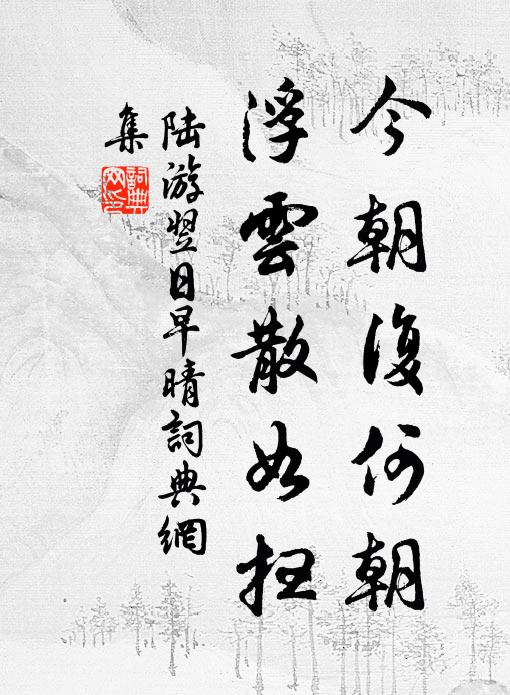 今朝復何朝
浮雲散如扫
陆游翌日早晴詞典網
集
詞典网印